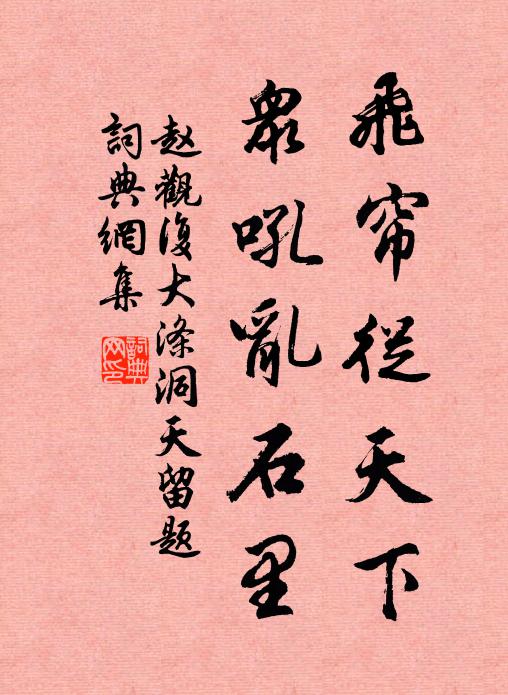 飛帘從天下
眾吼亂石里
赵觀復大滌洞天留題
詞典網集
詞典網印